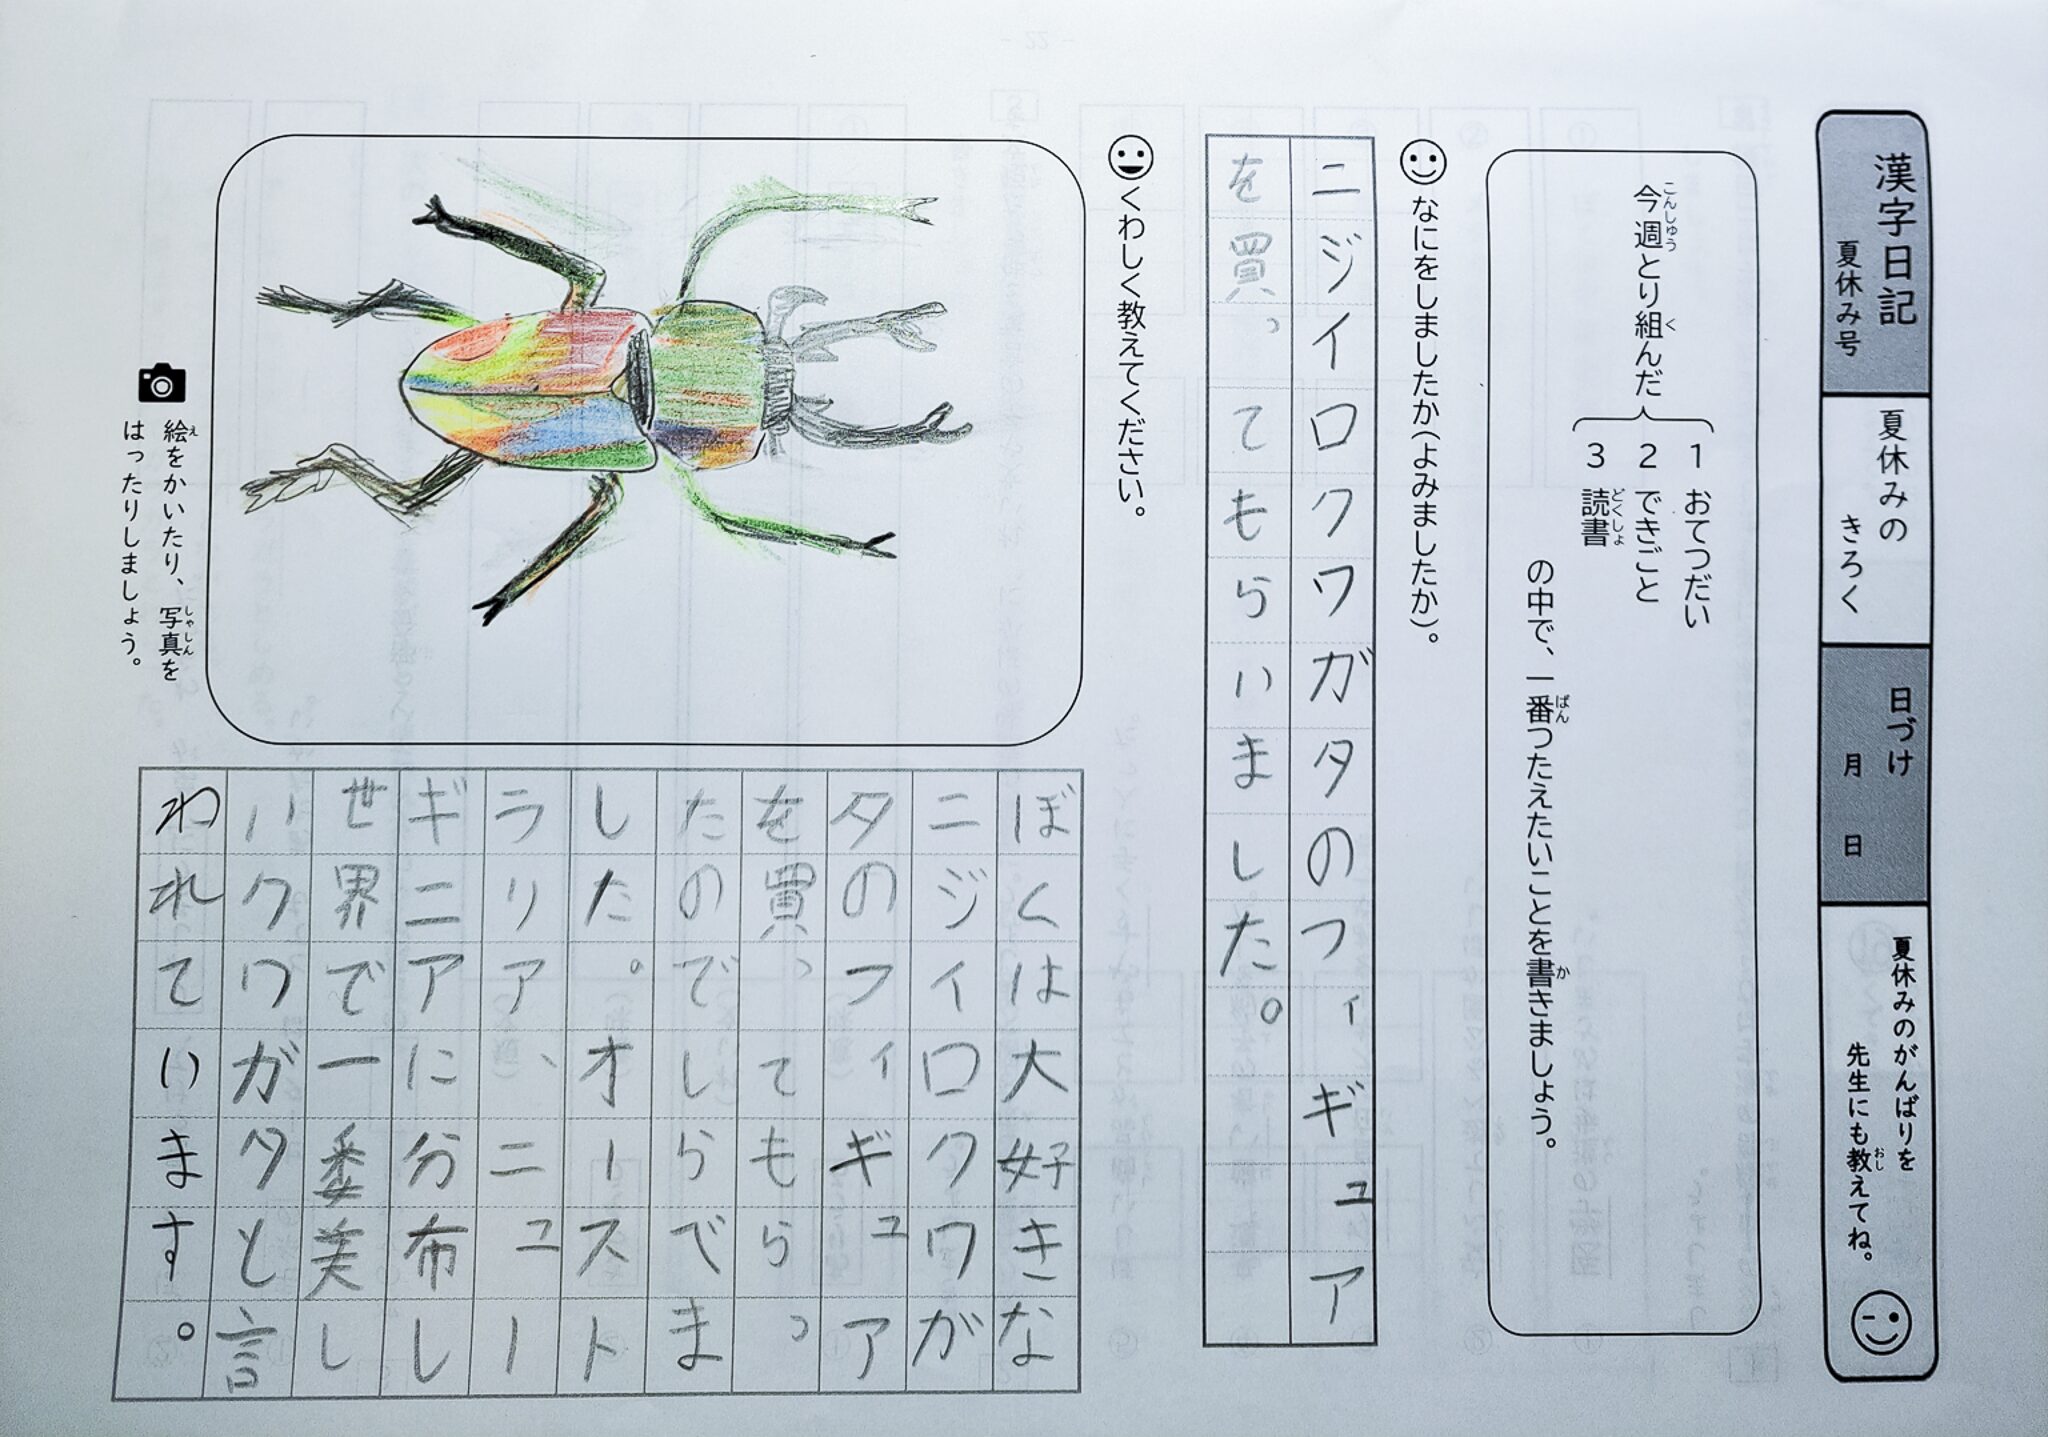 漢字日記
夏休み号
夏休みの
きろく
日づけ
月 日
夏休みのがんばりを
先生にも教えてね。
おし
今週とり組んだ
こんしゅう く
1 おてつだい
2 できごと
3 読書
どくしょ
の中で、一番つたえたいことを書きましょう。
ばん か
なにをしましたか(よみましたか)。
ニジイロクワガタのフィギュア
を買ってもらいました。
くわしく教えてください。
絵をかいたり、写真を
え しゃしん
はったりしましょう。
ぼくは大好きな
ニジイロクワガ
タのフィギュア
を買ってもらっ
たのでしらべま
した。オースト
ラリア、ニュー
ギニアに分布し
世界で一番美し
いクワガタと言
われています。